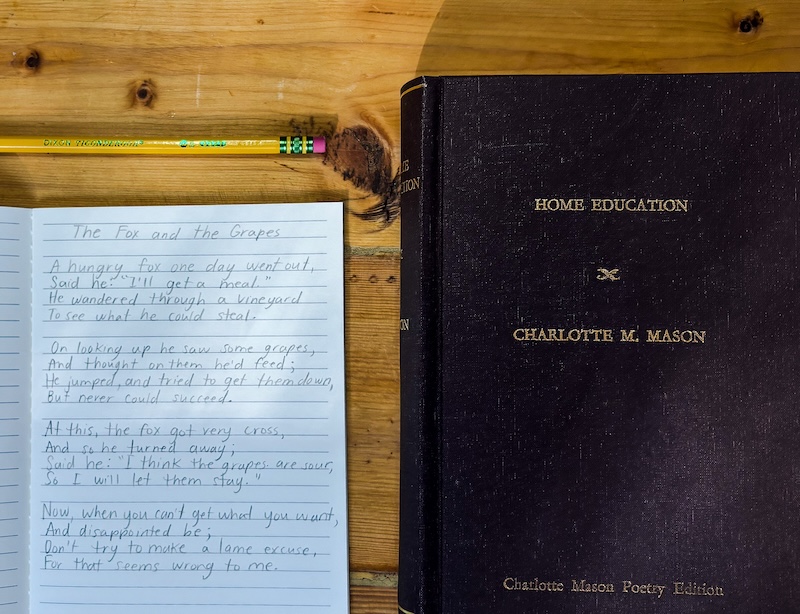 DIXON TICONDEROGA
The Fox and the Grapes
A hungry fox one day went out,
Said he: "I'll get a meal."
He wandered through a vineyard
To see what he could steal.
On looking up he saw some grapes,
And thought on them he'd feed;
He jumped, and tried to get them down,
But never could succeed.
At this, the fox got very cross,
And so he turned away;
Said he: "I think the grapes are sour,
So I will let them stay."
Now, when you can't get what you want,
And disappointed be;
Don't try to make a lame excuse,
For that seems wrong to me.
HOME EDUCATION
CHARLOTTE M. MASON
Charlotte Mason Poetry Edition